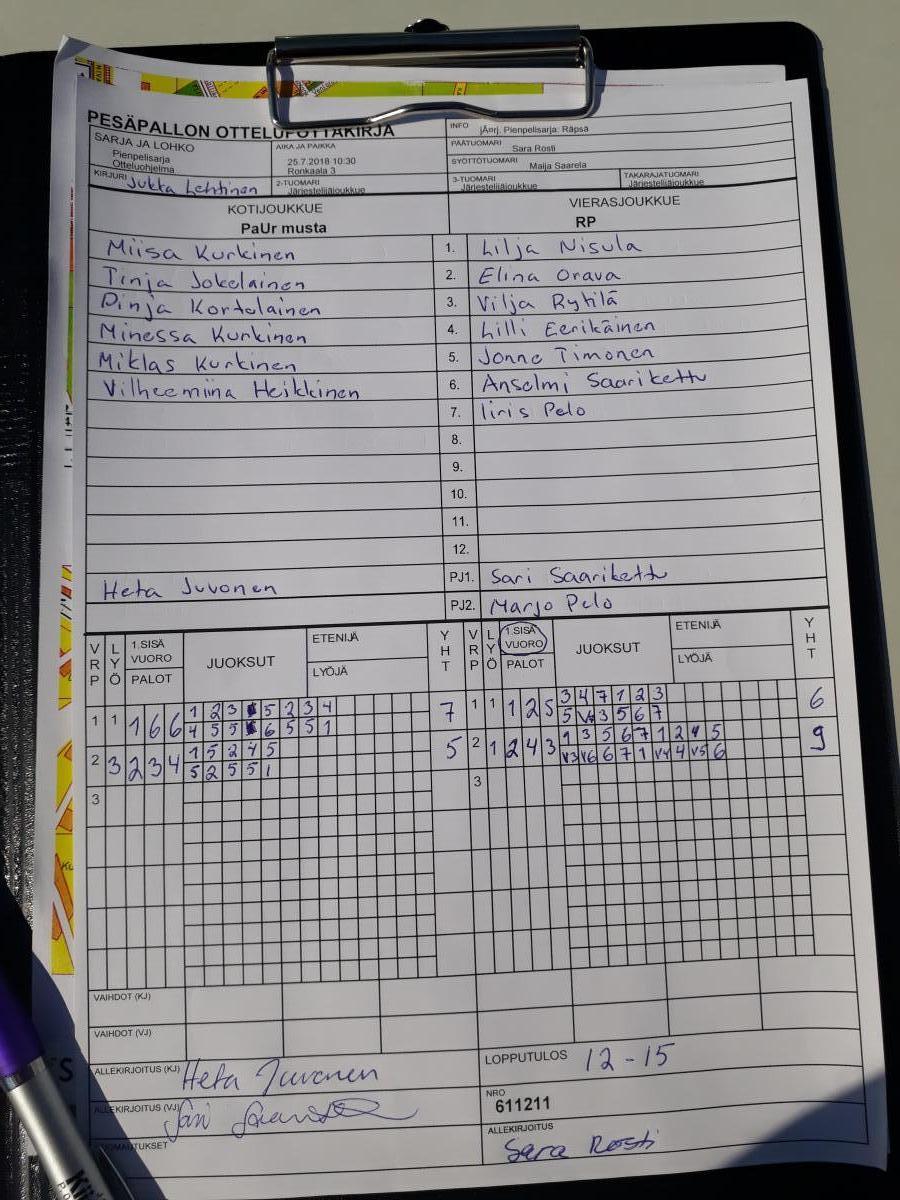 PESÄPALLON OTTELUPÖYTÄKIRJA
SARJA JA LOHKO
Pienpelisarja
Otteluohjelma
AIKA JA PAIKKA
25.7.2018 10:30
Ronkaala 3
INFO jÄrj. Pienpelisarja: Räpsä
PÄÄTUOMARI Sara Rosti
SYÖTTÖTUOMARI Maija Saarela
KIRJURI Jukka Lehtinen
2-TUOMARI
Järjestelijäjoukkue
3-TUOMARI
Järjestelijäjoukkue
TAKARAJATUOMARI
Järjestelijäjoukkue
KOTIJOUKKUE
PaUr musta
VIERASJOUKKUE
RP
Miisa Kurkinen 1. Lilja Nisula
Tinja Jokelainen 2. Elina Orava
Pinja Kortolainen 3. Vilja Rytilä
Minessa Kurkinen 4. Lilli Eerikäinen
Miklas Kurkinen 5. Jonne Timonen
Vilheemiina Heikkinen 6. Anselmi Saarikettu
7. Iiris Pelo
8.
9.
10.
11.
12.
Heta Juvonen PJ1. Sari Saarikettu
PJ2. Marjo Pelo
VRP LYÖ 1.SISÄ VUORO PALOT JUOKSUT ETENIJÄ LYÖJÄ YHT VRP LYÖ 1.SISÄ VUORO PALOT JUOKSUT ETENIJÄ LYÖJÄ YHT
1 1 1 6 6 1 2 3 5 2 3 4 7 1 1 1 2 5 3 4 7 1 2 3 6
4 5 5 6 5 5 1 5 V4 3 5 6 7
2 3 2 3 4 1 5 2 4 5 5 2 1 2 4 3 1 3 5 6 7 1 2 4 5 9
5 2 5 5 1 V3 V6 6 7 1 V4 4 V5 6
3 3
VAIHDOT (KJ)
VAIHDOT (VJ)
ALLEKIRJOITUS (KJ) Heta Juvonen
LOPPUTULOS 12-15
ALLEKIRJOITUS (VJ) Sari
NRO
611211
ALLEKIRJOITUS
Sara Rosti